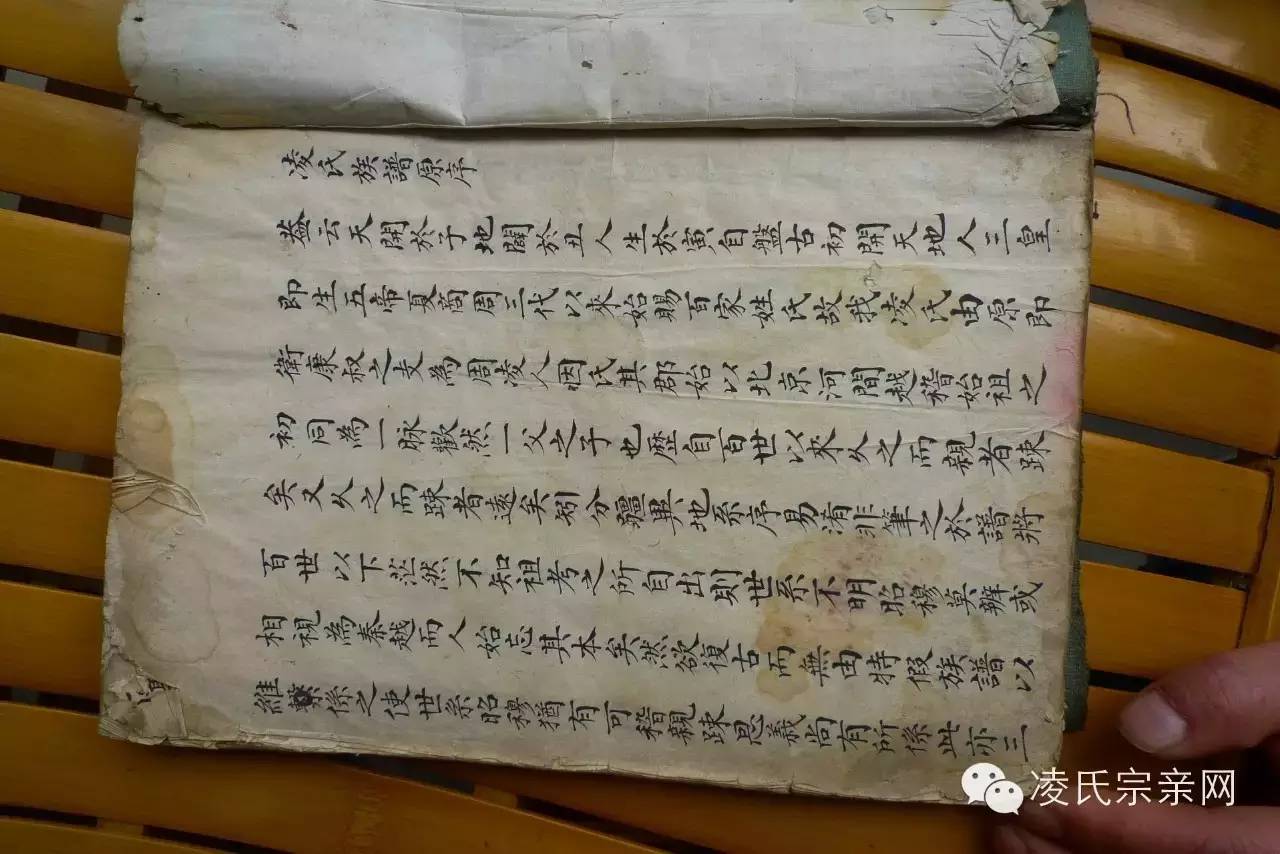 凌氏族譜原序
蓋云天開於子地闢於丑人生於寅自盤古初開天地人三皇
即生五帝夏商周三代以來始賜百家姓氏故我凌氏由原即
衛康叔之支為周凌人因氏其郡始以北京河間越稽始祖之
初同為一脉歡然一父之子也歷自百世以來久之而親者疎
矣又久之而疎者遠矣矧分疆異地系序易淆非筆之於譜將
百世以下茫然不知祖考之所自出則世系不明昭穆莫辨或
相視為秦越而人始忘其本矣然欲復古而無由特假族譜以
維繫係之使世系昭穆猶有可稽親疎恩義尚有所係此亦三
凌氏宗亲网